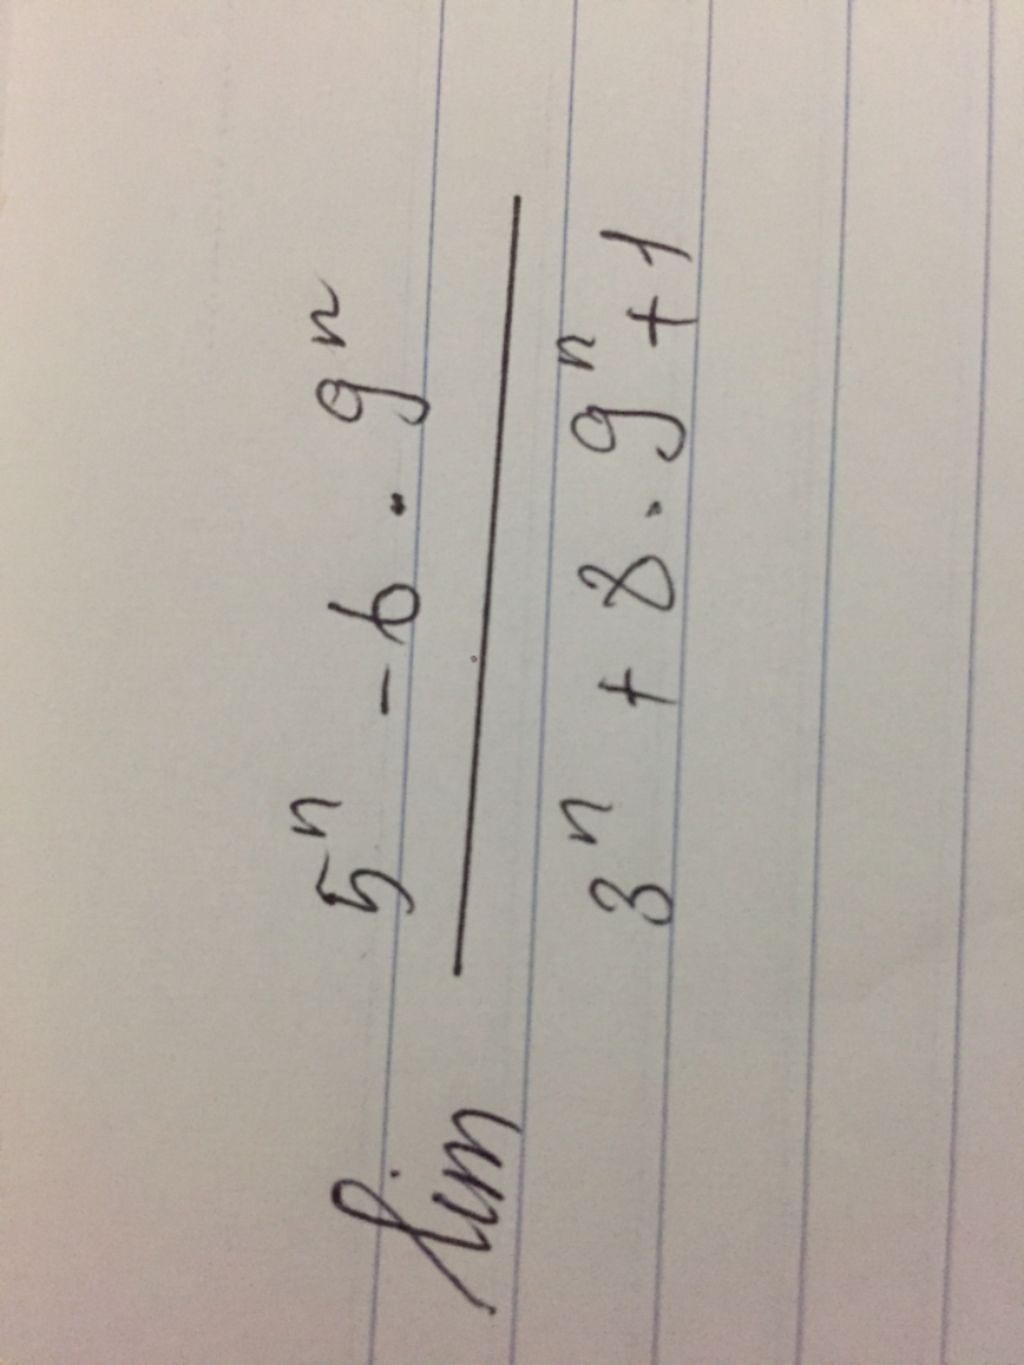 lim (5ⁿ - 6 . 9ⁿ) / (3ⁿ + 8 . 9ⁿ + 1)